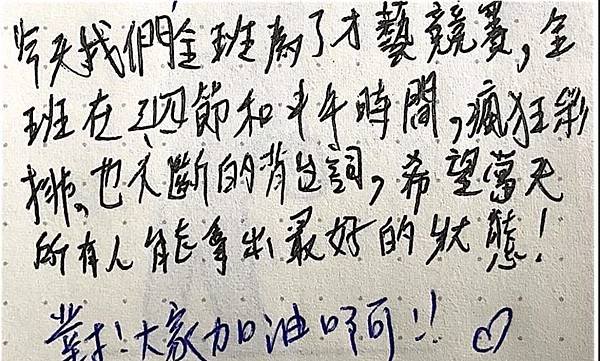 今天我們全班為了才藝競賽,全
班在三四節和中午時間,瘋狂彩
排,也不斷的背台詞,希望當天
所有人能拿出最好的狀態!
對!大家加油啊!! ♡